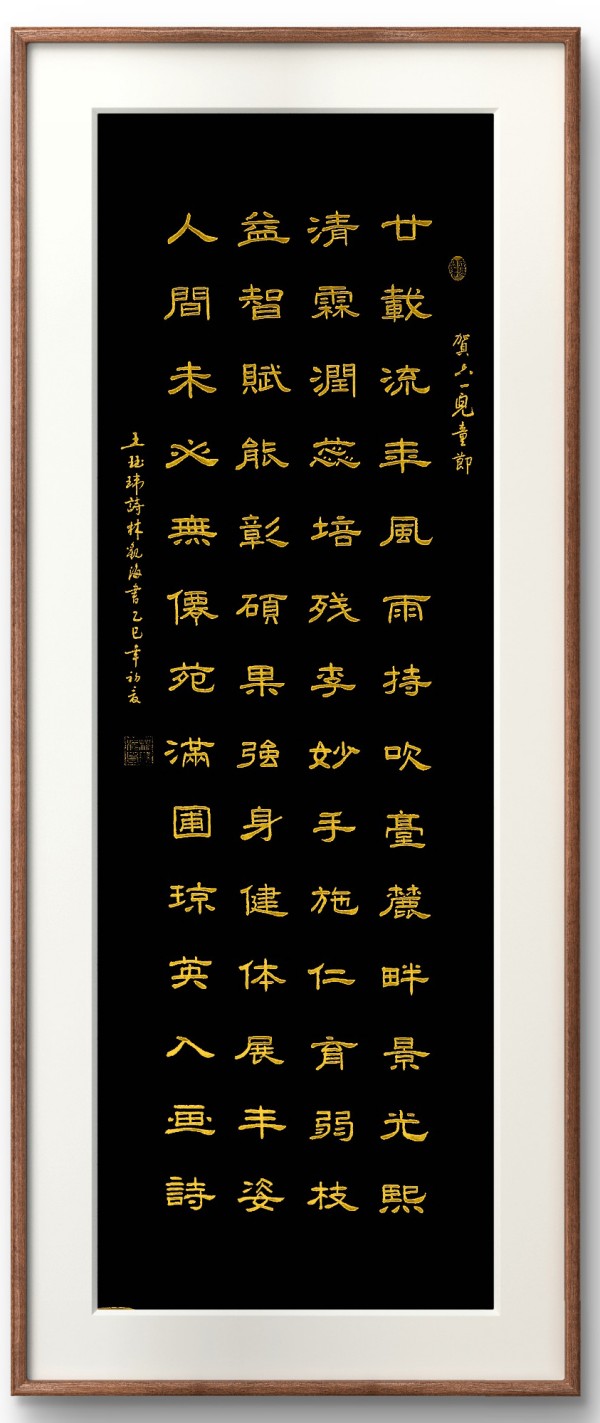 賀六一兒童節
廿載流年風雨持吹臺麓畔景光熙
清霖潤蕊培残李妙手施仁育弱枝
益智賦能彰碩果強身健体展丰姿
人間未必無僊苑滿圃琼英入画詩
王珏瑋詩林观海書乙巳年初夏